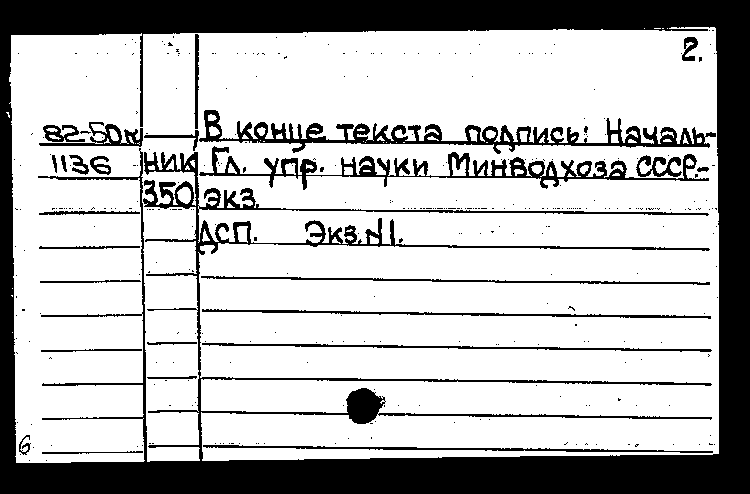 2.
82-50к В конце текста подпись: Началь-
1136 НИК Гл. упр. науки Минводхоза СССР.-
350 экз.
ДСП. Экз.N1.
6